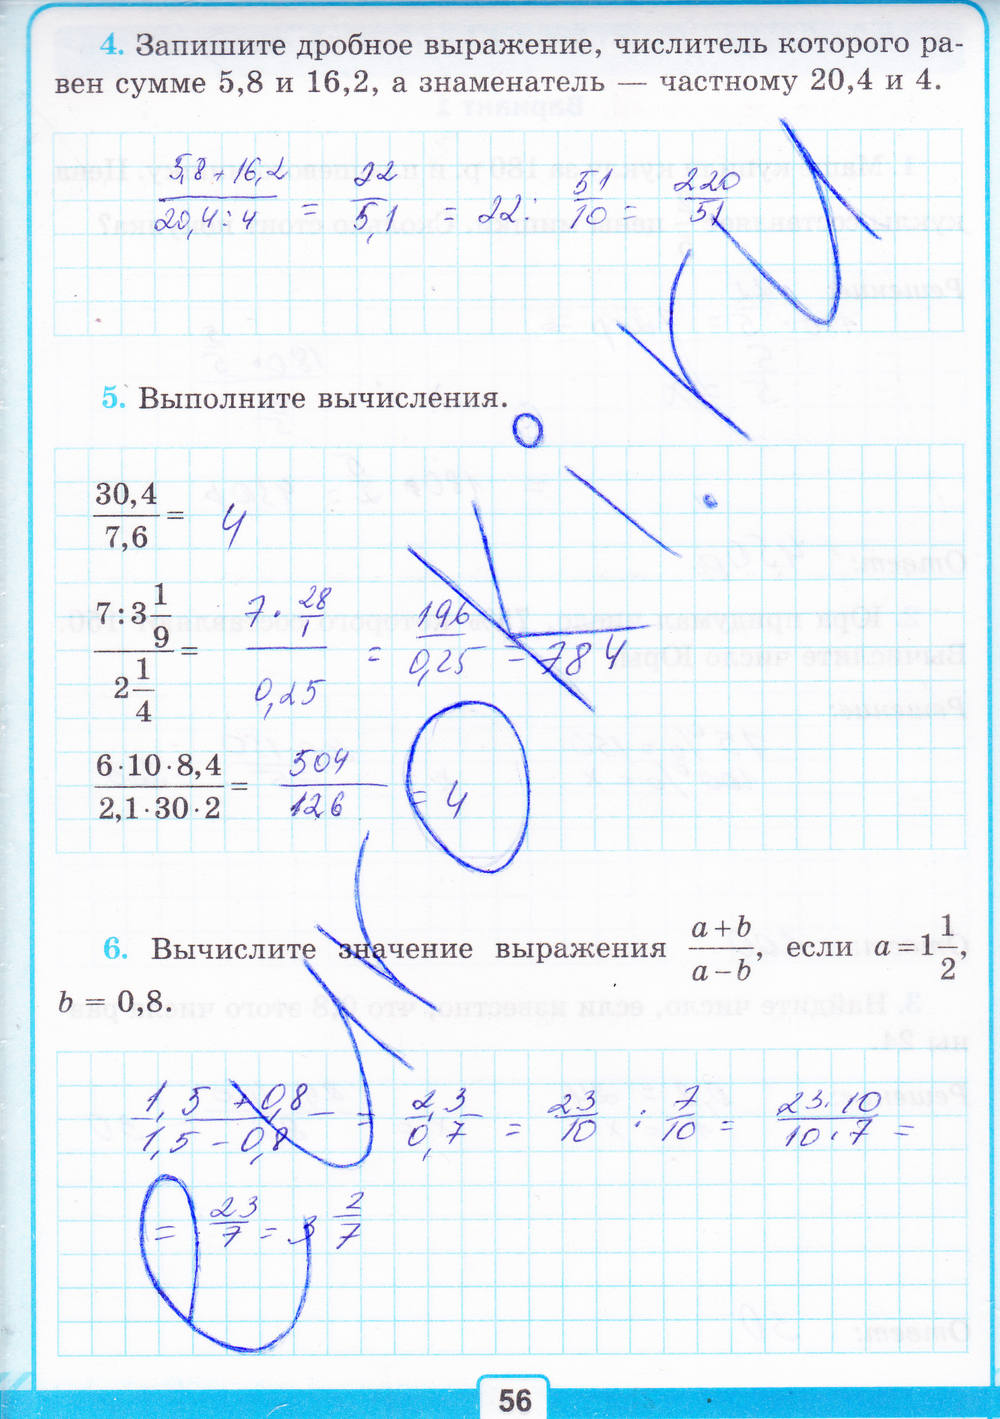 4. Запишите дробное выражение, числитель которого ра-
вен сумме 5,8 и 16,2, а знаменатель — частному 20,4 и 4.
5,8 + 16,2 / 20,4 : 4 = 22 / 5,1 = 22 : 51 / 10 = 220 / 51
5. Выполните вычисления.
30,4 / 7,6 = 4
7 : 3 1/9 / 2 1/4 = 7 · 28/1 / 0,25 = 196 / 0,25 = 784
6·10·8,4 / 2,1·30·2 = 504 / 126 = 4
6. Вычислите значение выражения a + b / a − b, если a = 1 1/2,
b = 0,8.
1,5 + 0,8 / 1,5 − 0,8 = 2,3 / 0,7 = 23/10 : 7/10 = 23·10 / 10·7 =
= 23/7 = 3 2/7
56